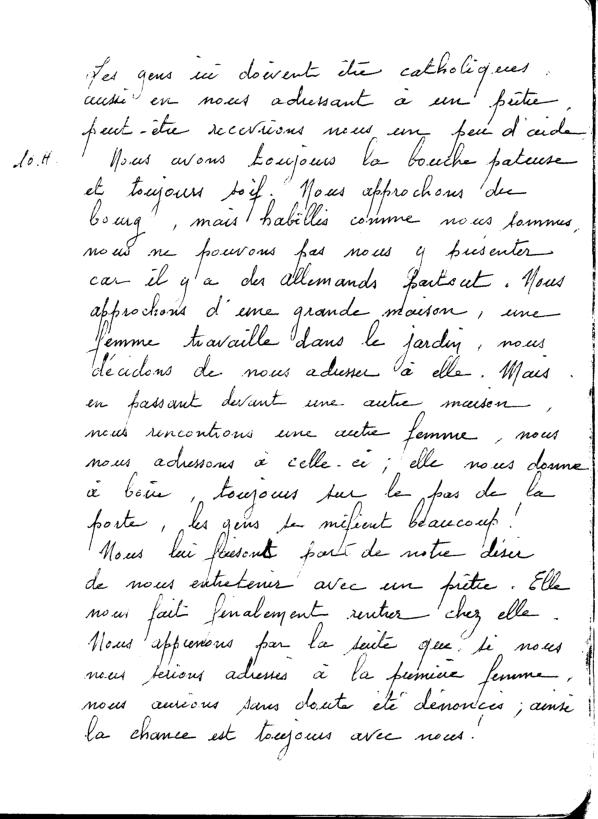 Les gens ici doivent être catholiques
aussi en nous adressant à un prêtre,
peut-être recevrions nous un peu d'aide
10.H. Nous avons toujours la bouche pateuse
et toujours soif. Nous approchons du
bourg, mais habillés comme nous sommes,
nous ne pouvons pas nous y présenter
car il y a des allemands partout. Nous
approchons d'une grande maison, une
femme travaille dans le jardin, nous
décidons de nous adresser à elle. Mais
en passant devant une autre maison,
nous rencontrons une autre femme, nous
nous adressons à celle-ci; elle nous donne
à boire, toujours sur le pas de la
porte, les gens se méfient beaucoup!
Nous lui faisons part de notre désir
de nous entretenir avec un prêtre. Elle
nous fait finalement rentrer chez elle.
Nous apprenons par la suite que si nous
nous serions adressés à la première femme,
nous aurions sans doute été dénoncés; ainsi
la chance est toujours avec nous!